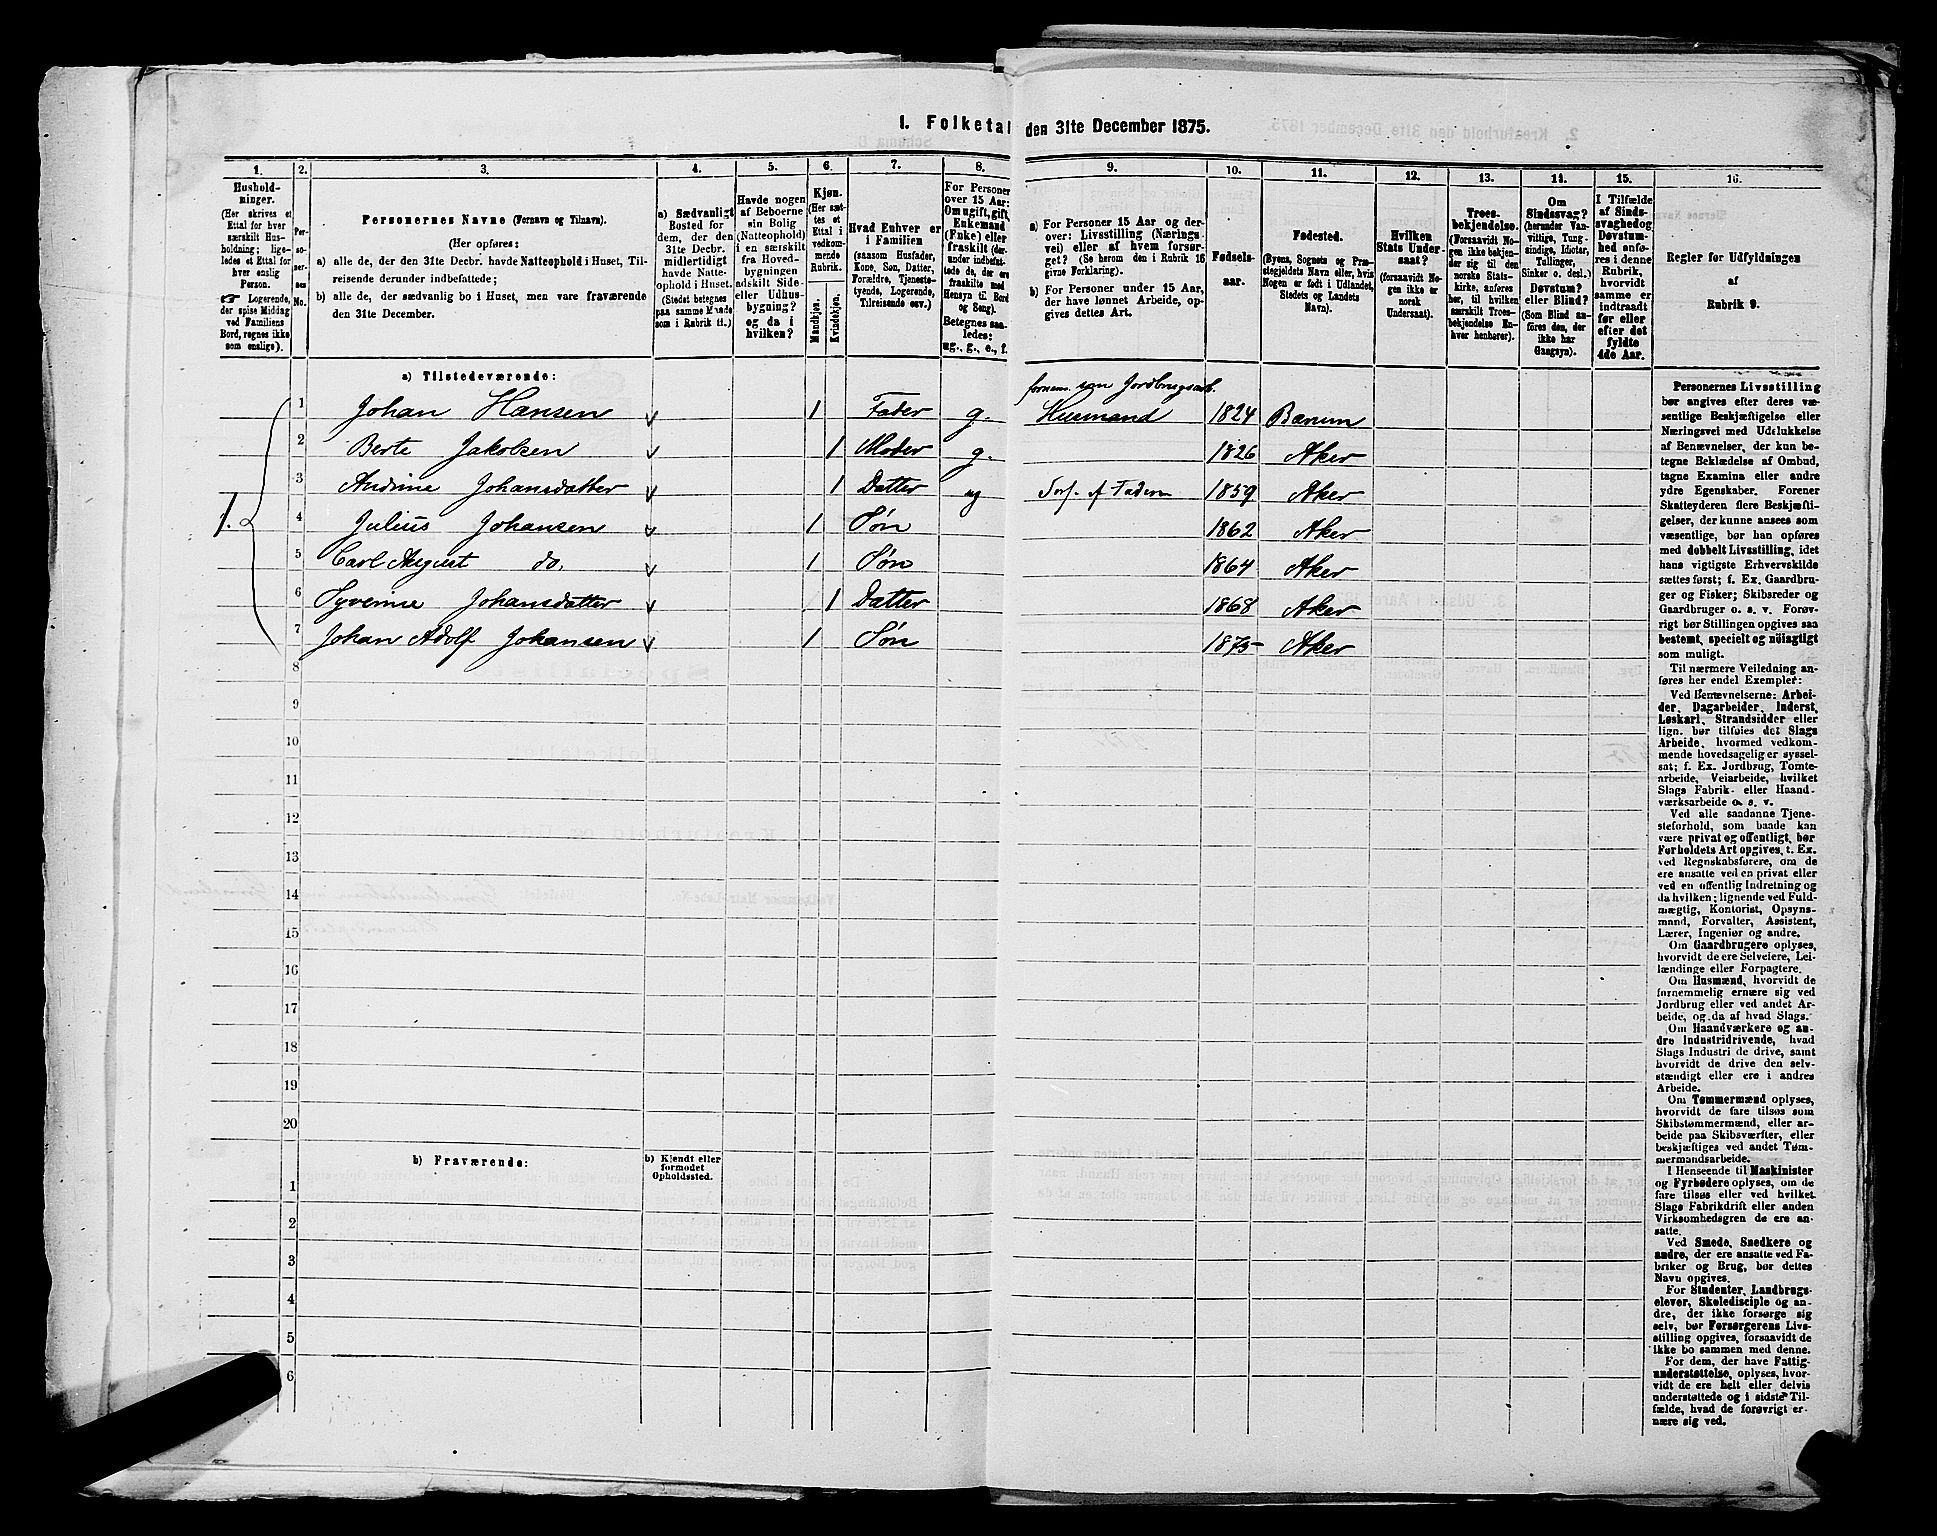 I. Folketal den 31te December 1875.
1. 2. 3. 4. 5. 6. 7. 8. 9. 10. 11. 12. 13. 14. 15. 16.
Hushold-
ninger.
(Her skrives et
Ettal for hver
særskilt Hus-
holdning; lige-
ledes et Ettal for
hver enslig
Person.
Logerende,
der spise Middag
ved Familiens
Bord, regnes ikke
som enslige).
Per-
so-
ner-
nes
No.
Personernes Navne (Fornavn og Tilnavn).
(Her opføres:
a) alle de, der den 31te Decbr. havde Natteophold i Huset, Til-
reisende derunder indbefattede;
b) alle de, der sædvanlig bo i Huset, men vare fraværende
den 31te December.
a) Sædvanligt
Bosted for
dem, der den
31te Decbr.
midlertidigt
havde Natte-
ophold i Huset.
(Stedet betegnes
paa samme Maade
som i Rubrik 11.)
Havde nogen
af Beboerne
sin Bolig
(Natteophold)
i en særskilt
fra Hoved-
bygningen
adskilt Side-
eller Udhus-
bygning?
og da i
hvilken?
Kjøn.
(Her sæt-
tes et
Ettal i
vedkom-
mende
Rubrik.
Mandkjøn.
Kvindekjøn.
Hvad Enhver er
i Familien
(saasom Husfader,
Kone, Søn, Datter,
Forældre, Tjeneste-
tyende, Logerende,
Tilreisende osv.)
For Personer
over 15 Aar:
Om ugift, gift,
Enkemand
(Enke) eller
fraskilt (der-
under indbefat-
tede de, der ere
fraskilte med
Hensyn til Bord
og Seng).
Betegnes saa-
ledes:
ug., g., e., f.
a) For Personer 15 Aar og der-
over: Livsstilling (Nærings-
vei) eller af hvem forsør-
get? (Se herom den i Rubrik 16
givne Forklaring).
b) For Personer under 15 Aar,
der have lønnet Arbeide, op-
gives dettes Art.
Fødsels-
aar.
Fødested.
(Byens, Sognets og Præ-
stegjeldets Navn eller, hvis
Nogen er født i Udlandet,
Stedets og Landets
Navn).
Hvilken
Stats Under-
saat?
(forsaavidt No-
gen ikke er
norsk
Undersaat).
Troes-
bekjendelse.
(Forsaavidt No-
gen ikke bekjen-
der sig til den
norske Stats-
kirke, anføres
her, til hvilken
særskilt Troes-
bekjendelse En-
hver henhører).
Om
Sindssvag?
(herunder Van-
vittige, Tung-
sindige, Idioter,
Tullinger,
Sinker o. desl.)
Døvstum?
eller Blind?
(Som Blind an-
føres den, der
ikke har
Gangsyn).
I Tilfælde
af Sinds-
svaghed og
Døvstum-
hed anfø-
res i denne
Rubrik,
hvorvidt
samme er
indtraadt
før eller
efter det
fyldte
4de Aar.
Regler før Udfyldningen
af
Rubrik 9.
a) Tilstedeværende:
fornem. som Jordbrugsarb.
1 Johan Hansen 1 Fader g. Husmand 1824 Bærum
2 Berte Jakobsen 1 Moder g. 1826 Aker
3 Andrine Johansdatter 1 Datter ug Fors. af Faderen 1859 Aker
1. 4 Julius Johansen 1 Søn 1862 Aker
5 Carl August do. 1 Søn 1864 Aker
6 Syverine Johansdatter 1 Datter 1868 Aker
7 Johan Adolf Johansen 1 Søn 1875 Aker
8
9
10
11
12
13
14
15
16
17
18
19
20
b) Fraværende:
b) Kjendt eller
formodet
Opholdssted.
1
2
3
4
5
6
Personernes Livsstilling
bør angives efter deres væ-
sentlige Beskjæftigelse eller
Næringsvei med Udelukkelse
af Benævnelser, der kun be-
tegne Beklædelse af Ombud,
tagne Examina eller andre
ydre Egenskaber. Forener
Skatteyderen flere Beskjæfti-
gelser, der kunne ansees som
væsentlige, bør han opføres
med dobbelt Livsstilling, idet
hans vigtigste Erhvervskilde
sættes først; f. Ex. Gaardbru-
ger og Fisker; Skibsreder og
Gaardbruger o. s. v. Forøv-
rigt bør Stillingen opgives saa
bestemt, specielt og nøiagtigt
som muligt.
Til nærmere Veiledning an-
føres her endel Exempler:
Ved Benævnelserne: Arbei-
der, Dagarbeider, Inderst,
Løskarl, Strandsidder eller
lign. bør tilføies det Slags
Arbeide, hvormed vedkom-
mende hovedsagelig er syssel-
sat; f. Ex. Jordbrug, Tomte-
arbeide, Veiarbeide, hvilket
Slags Fabrik- eller Haand-
værksarbeide o. s. v.
Ved alle saadanne Tjene-
steforhold, som baade kan
være privat og offentligt, bør
Forholdets Art opgives, f. Ex.
ved Regnskabsførere, om de
ere ansatte ved en privat eller
ved en offentlig Indretning og
da hvilken; lignende ved Fuld-
mægtig, Kontorist, Opsyns-
mand, Forvalter, Assistent,
Lærer, Ingeniør og andre.
Om Gaardbrugere oplyses,
hvorvidt de ere Selveiere, Lei-
lændinge eller Forpagtere.
Om Husmænd, hvorvidt de
fornemmelig ernære sig ved
Jordbrug eller ved andet Ar-
beide, og da af hvad Slags.
Om Haandværkere og an-
dre Industridrivende, hvad
Slags Industri de drive, samt
hvorvidt de drive den selv-
stændigt eller ere i andres
Arbeide.
Om Tømmermænd oplyses,
hvorvidt de fare tilsøs som
Skibstømmermænd, eller ar-
beide paa Skibsværfter, eller
beskjæftiges ved andet Tøm-
mermandsarbeide.
I Henseende til Maskinister
og Fyrbødere oplyses, om de
fare tilsøs eller ved hvilket
Slags Fabrikdrift eller anden
Virksomhedsgren de ere an-
satte.
Ved Smede, Snedkere og
andre, der ere ansatte ved Fa-
briker og Brug, bør dettes
Navn opgives.
For Studenter, Landbrugs-
elever, Skoledisciple og an-
dre, der ikke forsørge sig
selv, bør Forsørgerens Livs-
stilling opgives, forsaavidt de
ikke bo sammen med denne.
For dem, der have Fattig-
understøttelse, oplyses, hvor-
vidt de ere helt eller delvis
understøttede og i sidste Til-
fælde, hvad de forøvrigt er-
nære sig ved.